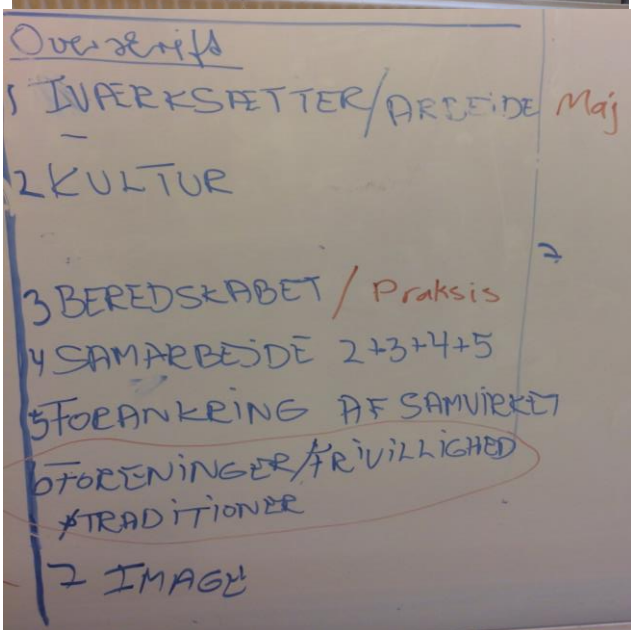 Overskrift
1 IVÆRKSÆTTER/ARBEJDE Maj
2 KULTUR
3 BEREDSKABET / Praksis
4 SAMARBEJDE 2+3+4+5
5 FORANKRING AF SAMVIRKET
6 FORENINGER/FRIVILLIGHED
TRADITIONER
7 IMAGE